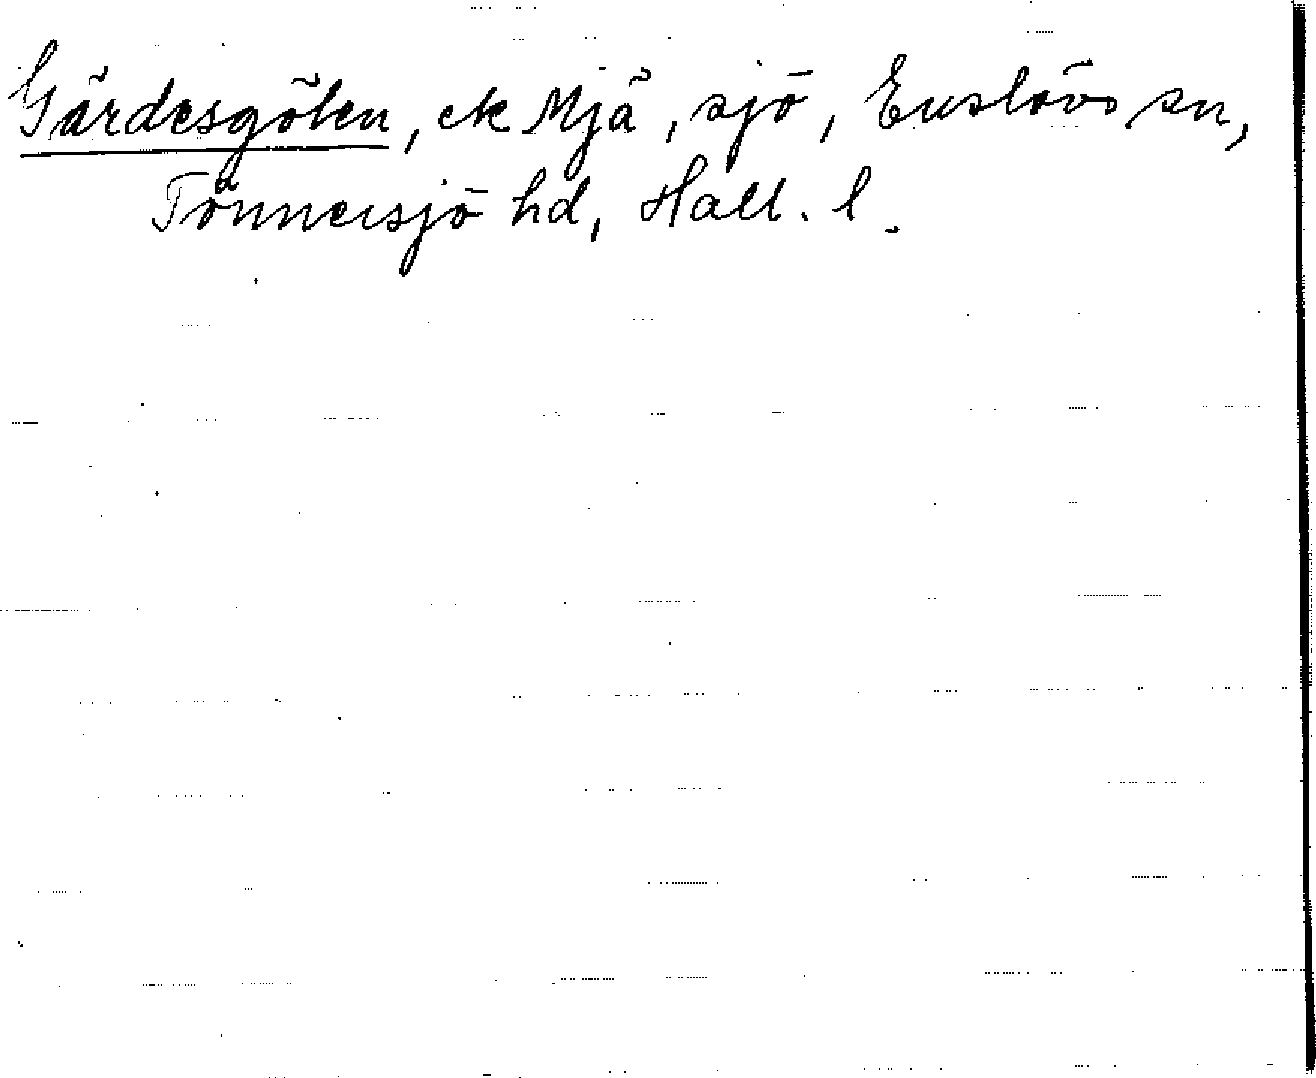 Gärdesgölen, ek Mjä, sjö, Enslövs sn,
Tönnersjö hd, Hall. l.